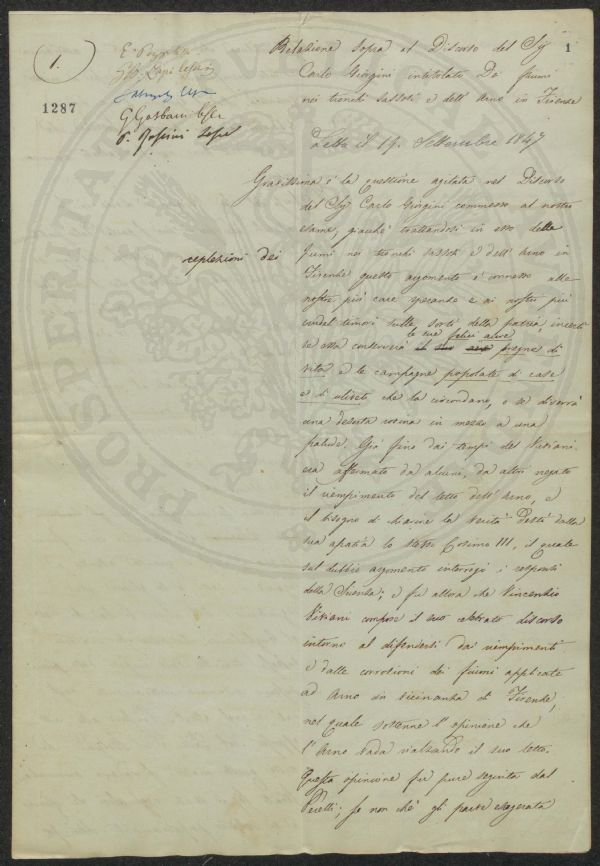 1.
1287
1
Relazione sopra al Discorso del Sig
Carlo Giorgini intitolato Dei fiumi
nei tronchi sassosi e dell' Arno in Firenze
Letta il Settembre 1847
Gravissima è la questione agitata nel Discorso
del Sig Carlo Giorgini commesso al nostro
esame, giacché trattandosi in esso della
replezioni dei
fiumi nei tronchi sassosi e dell' Arno in
Firenze questo argomento è connesso alle
nostre più care speranze e ai nostri più
crudeli timori sulla sorte della patria, incerti
le sue felici aure
se essa conserverà pregne di
vita e le campagne popolate di case
e di uliveti che la circondano, o se diverrà
una deserta rovina in mezzo a una
palude. Già fino dai tempi del Viviani
era affermato da alcuni, da altri negato
il riempimento del letto dell' Arno, e
il bisogno di chiarire la verità destò dalla
sua apatia lo stesso Cosimo III, il quale
sul dubbio argomento interrogò i responsi
della Scienza; e fu allora che Vincenzio
Viviani compose il suo celebrato discorso
intorno al difendersi dai riempimenti
e dalle corrosioni dei fiumi applicate
ad Arno in vicinanza di Firenze,
nel quale sostenne l' opinione che
l' Arno vada rialzando il suo letto.
Questa opinione fu pure seguita dal
Perelli; se non ché gli parve esagerata
PROSPERITÀ